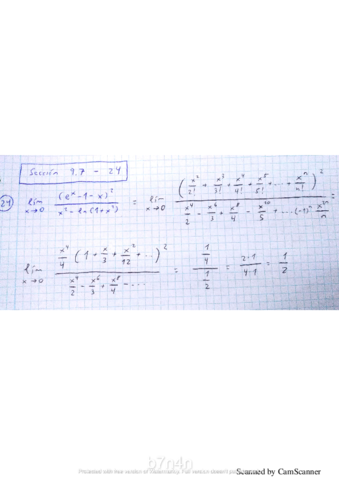 Sección 9.7 - 24
24) lim x→0 (e^x - 1 - x)^2 / (x^2 - ln(1 + x^2)) = lim x→0 (x^2/2! + x^3/3! + x^4/4! + x^5/5! + ... + x^n/n!)^2 / (x^4/2 - x^6/3 + x^8/4 - x^10/5 + ...(-1)^n x^2n/n) =
lim x→0 x^4/4 (1 + x/3 + x^2/12 + ...)^2 / (x^4/2 - x^6/3 + x^8/4 - ...) = (1/4) / (1/2) = 2·1 / 4·1 = 1/2
b7n4n
Scanned by CamScanner